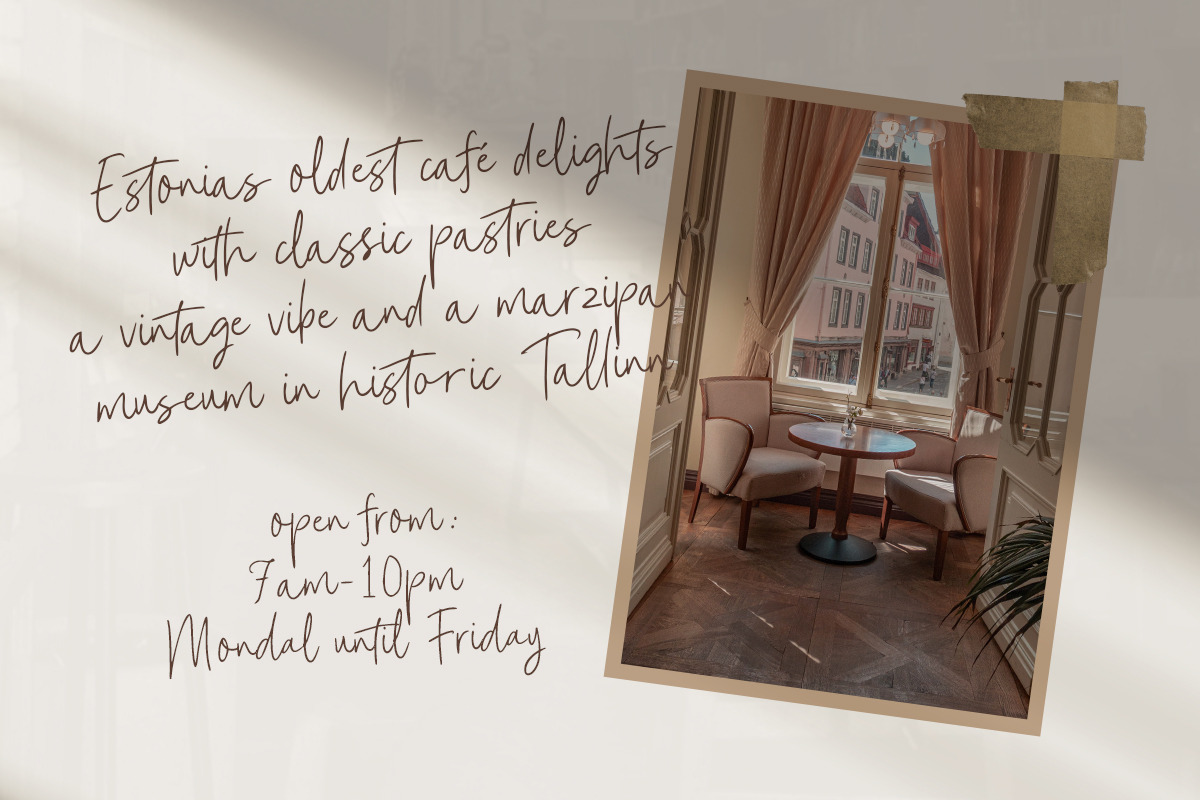 Estonias oldest café delights
with classic pastries
a vintage vibe and a marzipan
museum in historic Tallinn
open from:
7am-10pm
Mondal until Friday